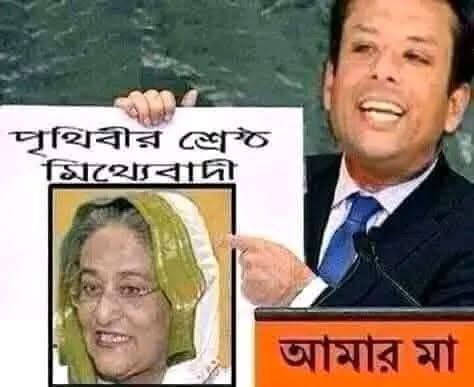 পৃথিবীর শ্রেষ্ঠ
মিথ্যেবাদী
আমার মা